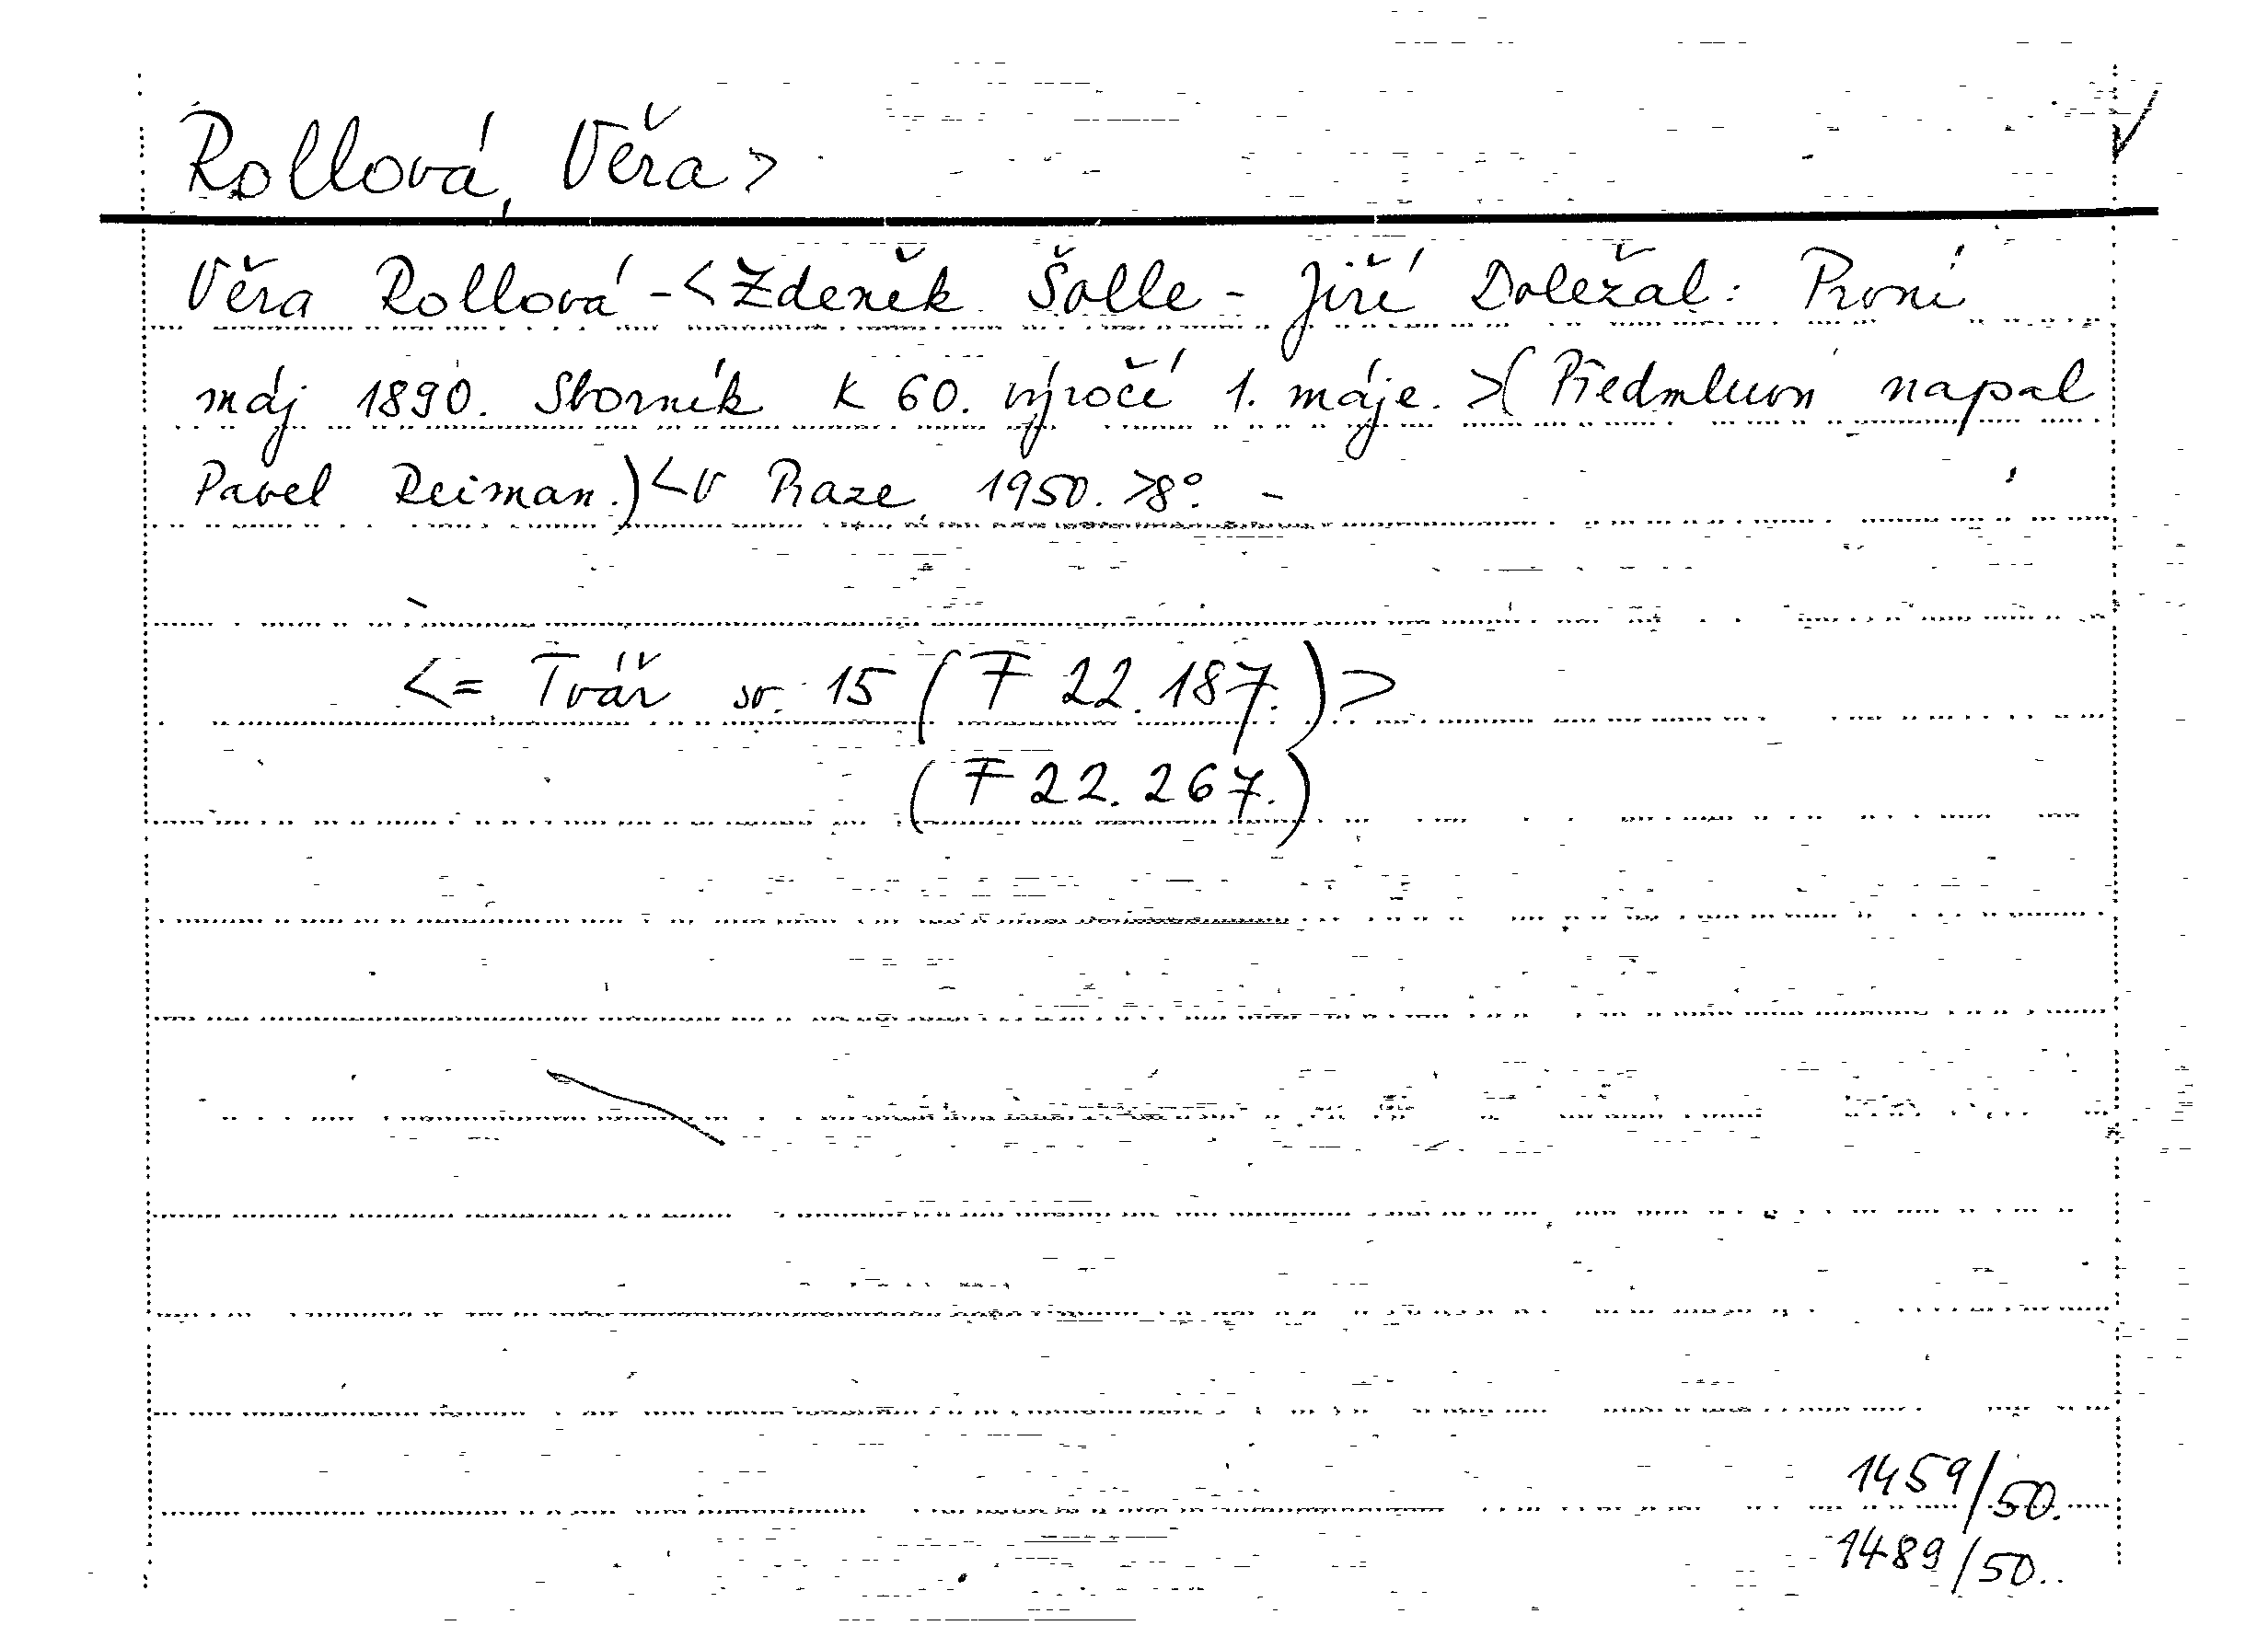 Rollová, Věra >
Věra Rollová - < Zdeněk Šolle - Jiří Doležal: První
máj 1890. Sborník k 60. výročí 1. máje. > ( Předmluvu napsal
Pavel Reiman.) < V Praze, 1950. > 8°. -
< = Tvář sv. 15 ( F 22.187. ) >
( F 22.267. )
1459/50.
1489/50.